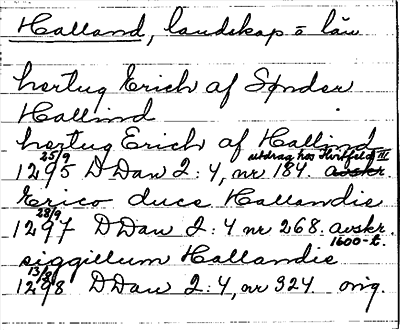 Halland, landskap o län
hertug Erich af Synder
Hallind
hertug Erich af Hallind
25/9 utdrag hos Hvitfeld III
1295 DDan 2:4, nr 184. avskr.
Erico duce Hallandie
28/9
1297 DDan 2:4 nr 268. avskr.
1600-t.
siggillum Hallandie
1298 DDan 2:4, nr 324. orig.